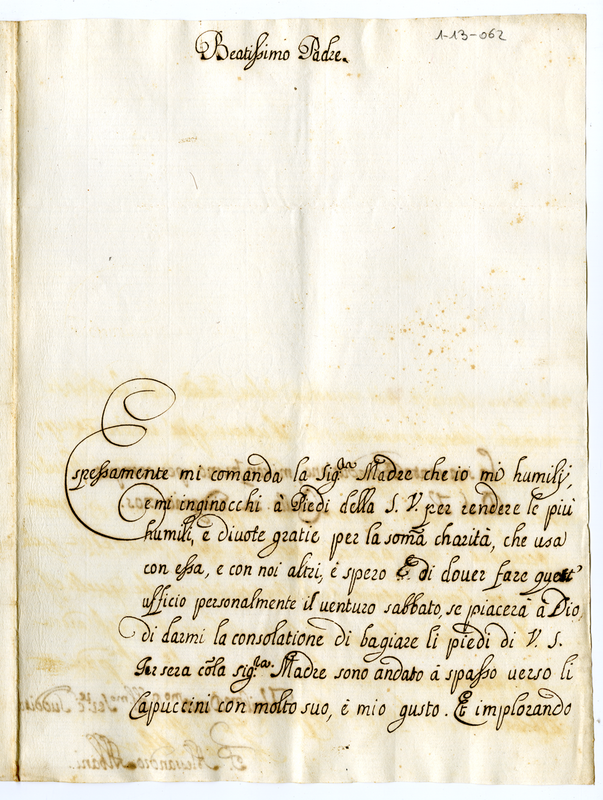 1-13-062
Beatissimo Padre.
Espressamente mi comanda la Sig.ra Madre che io mi humilij,
e mi inginocchi à Piedi della S. V. per rendere le più
humili, e divote gratie per la som̃a charità, che usa
con essa, e con noi altri, è spero E di dover fare quest'
ufficio personalmente il venturo sabbato, se piacerà à Dio,
di darmi la consolatione di bagiare li piedi di V. S.
Jer sera cõ la Sig.ra Madre sono andato à spasso verso li
Capuccini con molto suo, è mio gusto. E implorando